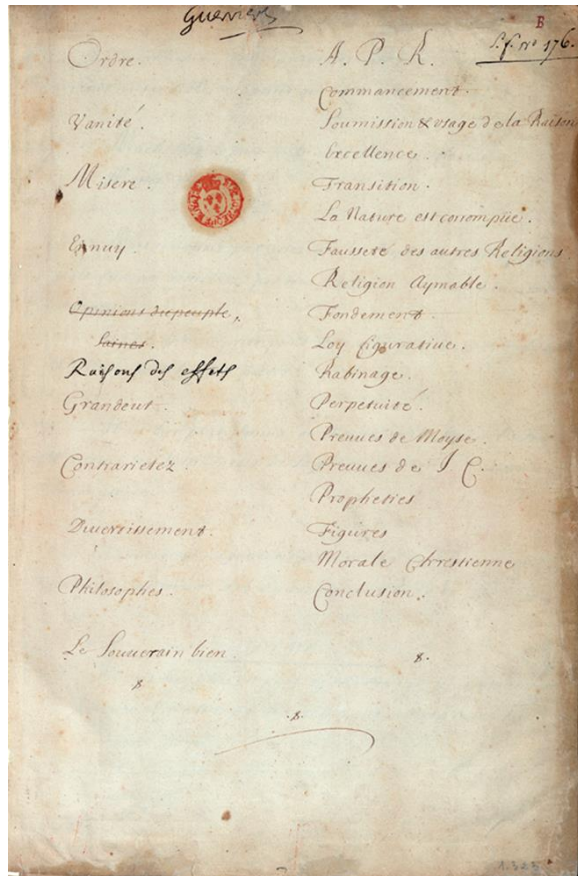 Guerrier
B
S. f. no 176.
Ordre.
Vanité.
Misere.
Ennuy
Opinions du peuple,
saines.
Raisons des effets
Grandeur.
Contrarietez
Divertissement.
Philosophes.
Le Souverain bien.
A. P. R.
Commancement.
Soumission & usage de la Raison
Excellence.
Transition.
La Nature est corrompüe.
Fausseté des autres Religions
Religion Aymable.
Fondement.
Loy figurative.
Rabinage.
Perpetuité.
Preuves de Moyse.
Preuves de J C.
Propheties
Figures
Morale Chrestienne
Conclusion.